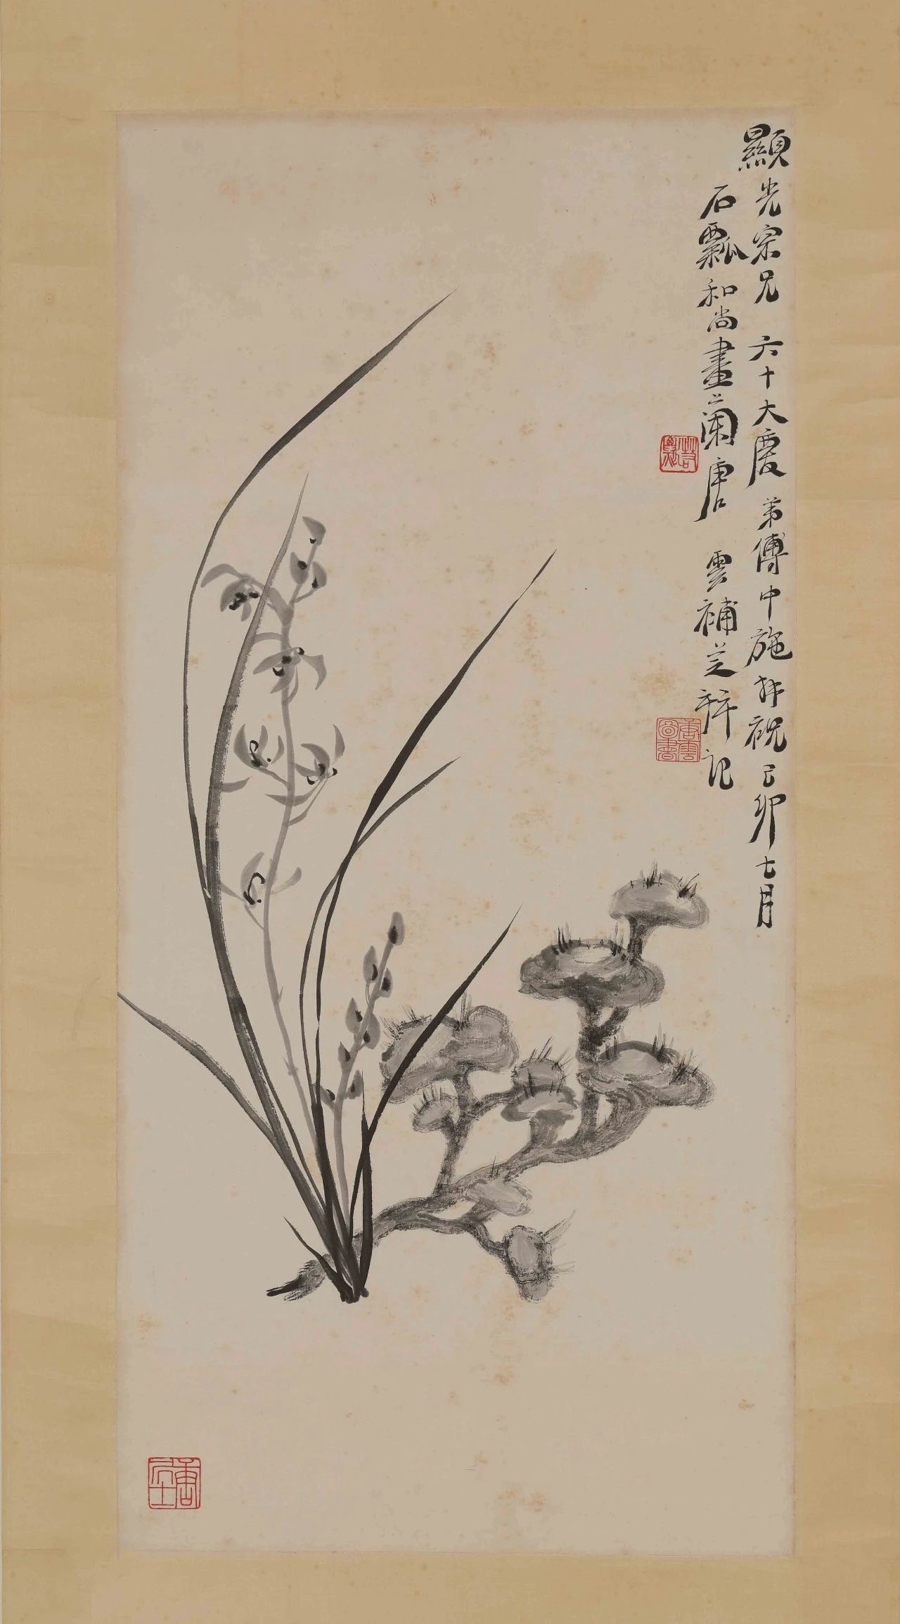 顯光宗兄 六十大慶 弟傅中施拜祝己卯七月
石瓢和尚畫蘭唐 雲補芝并記
唐雲